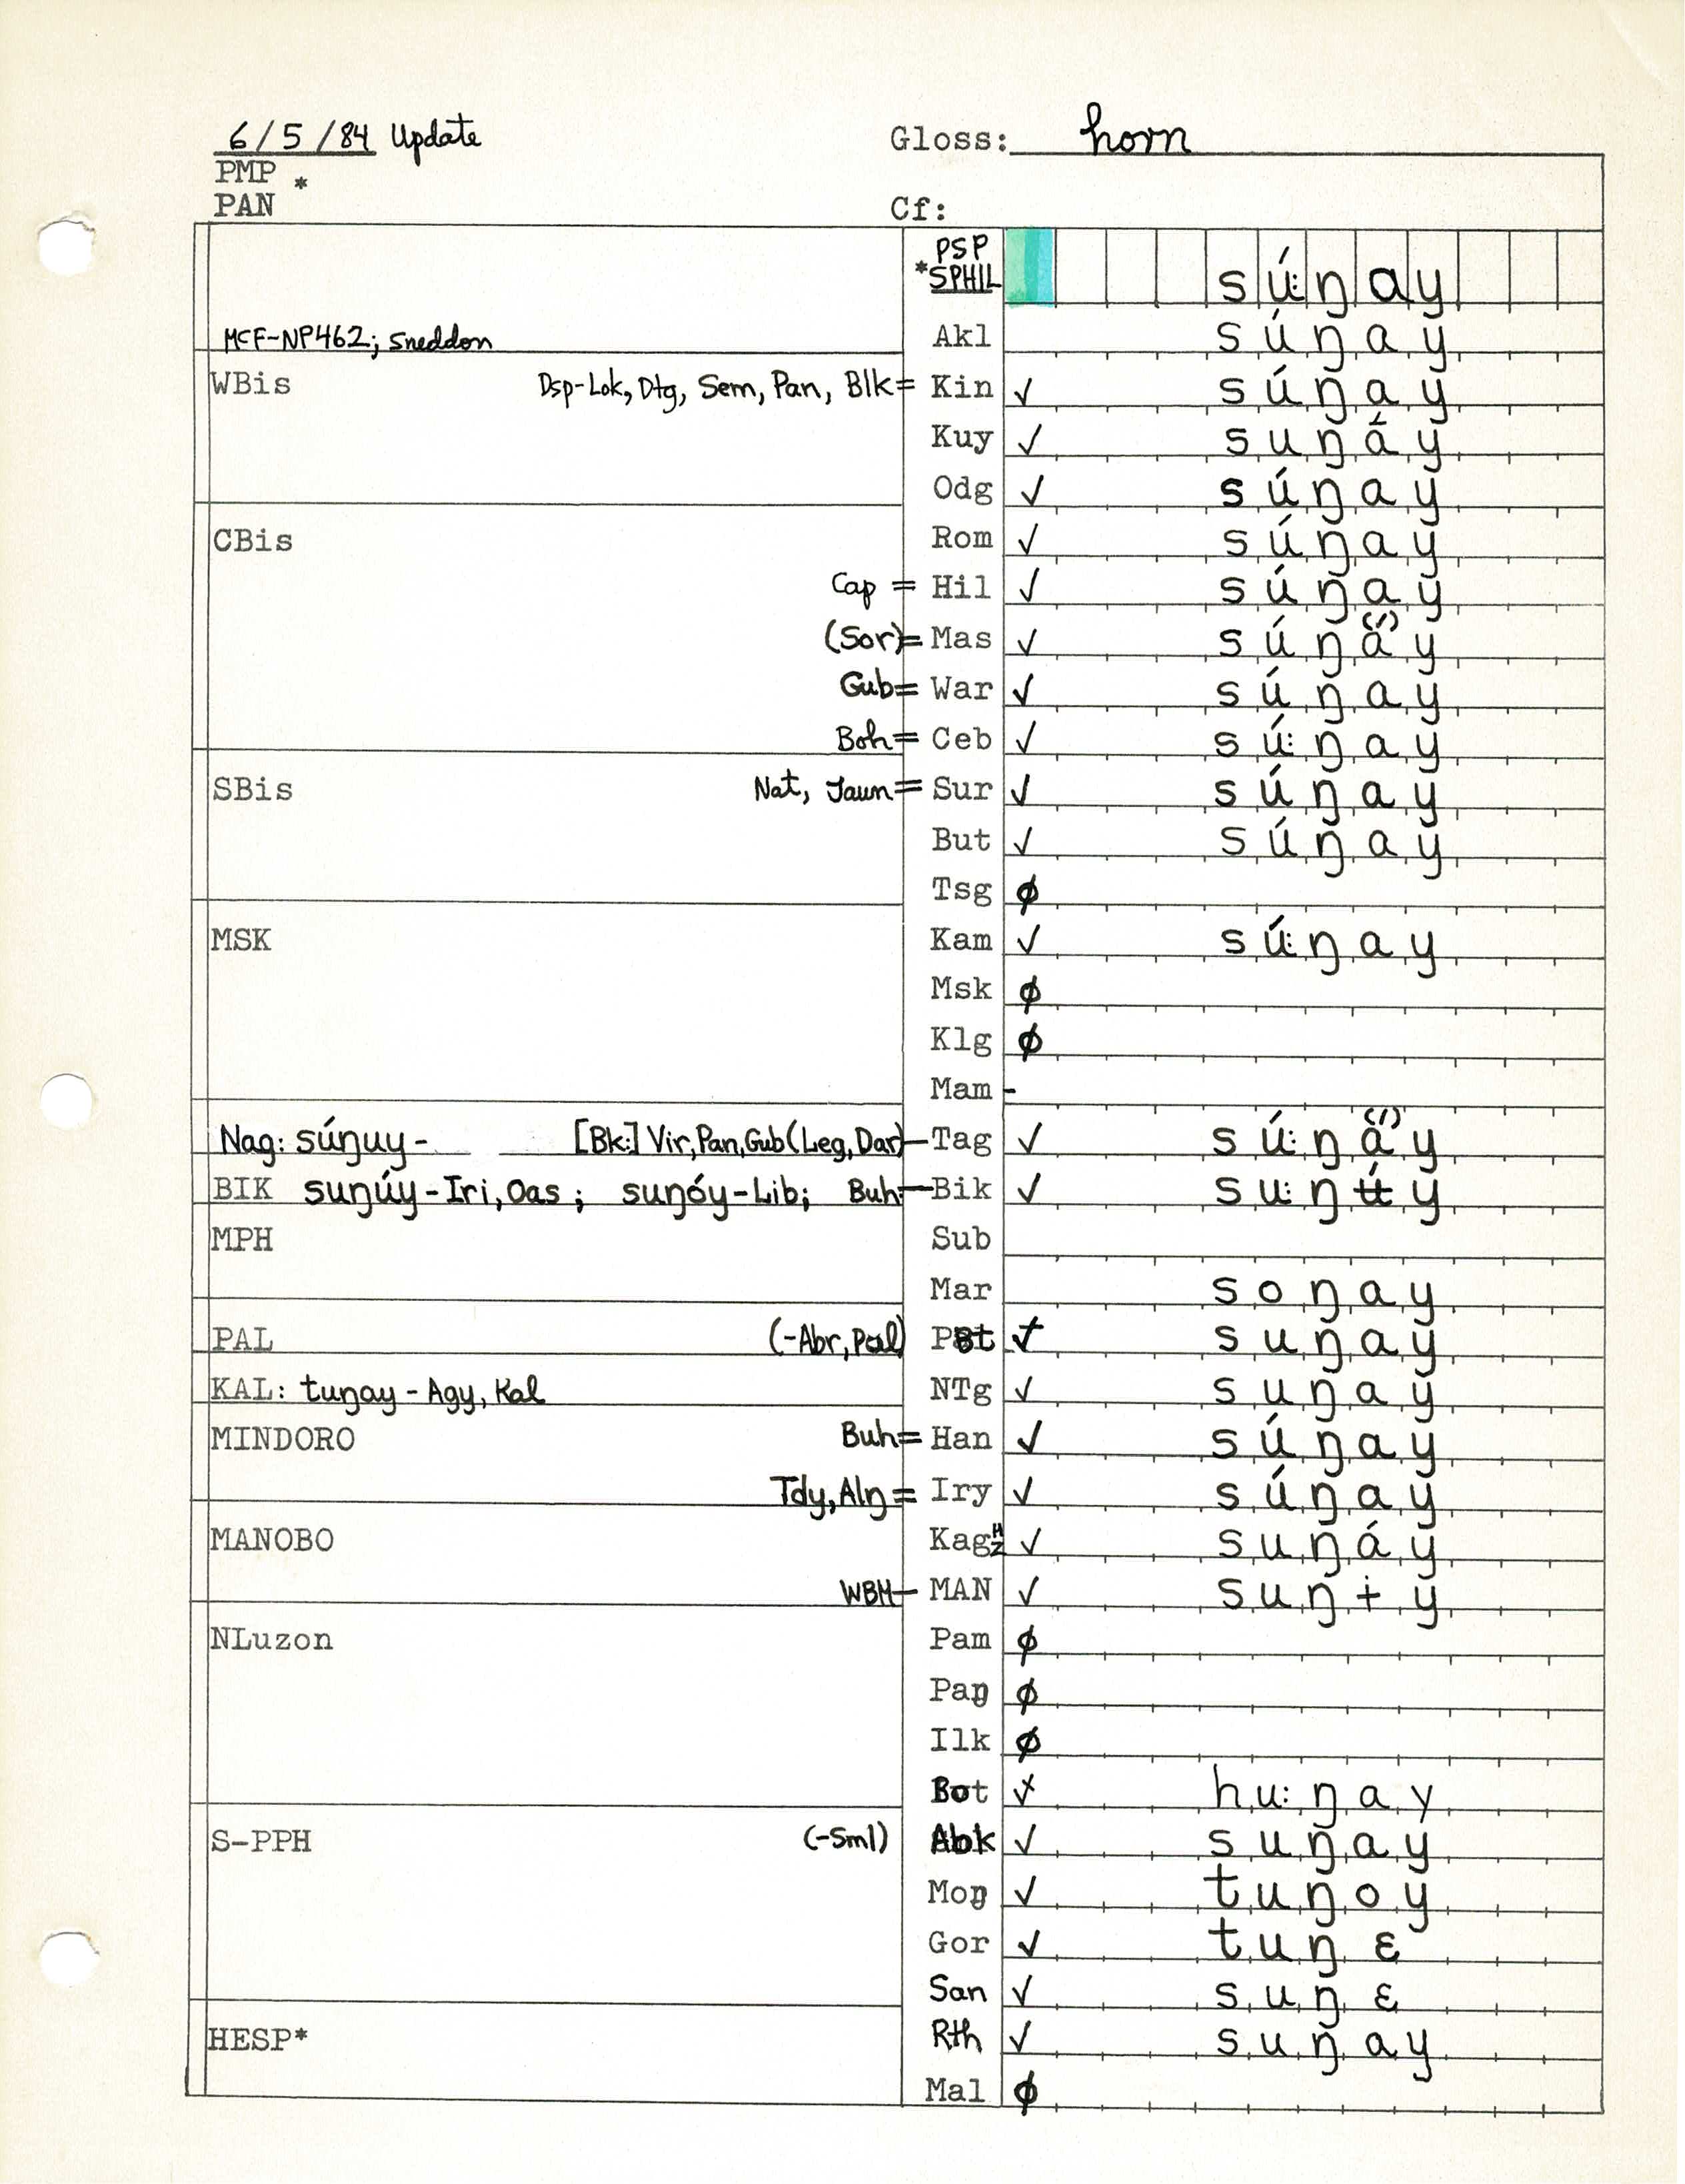 6/5/84 Update Gloss: horn
PMP *
PAN Cf:
PSP
*SPHIL sú:ŋay
MCF-NP462; Sneddon Akl súŋay
WBis Dsp-Lok, Dtg, Sem, Pan, Blk= Kin ✓ súŋay
Kuy ✓ suŋáy
Odg ✓ súŋay
CBis Rom ✓ súŋay
Cap = Hil ✓ súŋay
(Sor)= Mas ✓ súŋa(´)y
Gub= War ✓ súŋay
Boh= Ceb ✓ sú:ŋay
SBis Nat, Jaun= Sur ✓ súŋay
But ✓ súŋay
Tsg ∅
MSK Kam ✓ sú:ŋay
Msk ∅
Klg ∅
Mam -
Nag: súŋuy- [Bk:] Vir,Pan,Gub(Leg,Dar)- Tag ✓ sú:ŋa(´)y
BIK suŋúy-Iri,Oas; suŋóy-Lib; Buh- Bik ✓ su:ŋʉ́y
MPH Sub
Mar soŋay
PAL (-Abr,Pal) Bt ✓ suŋay
KAL: tuŋay - Agy, Kal NTg ✓ suŋay
MINDORO Buh= Han ✓ súŋay
Tdy,Alŋ= Iry ✓ súŋay
MANOBO Kag ✓ suŋáy
WBM- MAN ✓ suŋɨy
NLuzon Pam ∅
Paŋ ∅
Ilk ∅
Bot ✓ hu:ŋay
S-PPH (-Sml) Abk ✓ suŋay
Moŋ ✓ tuŋoy
Gor ✓ tuŋɛ
San ✓ suŋɛ
HESP* Rth ✓ suŋay
Mal ∅